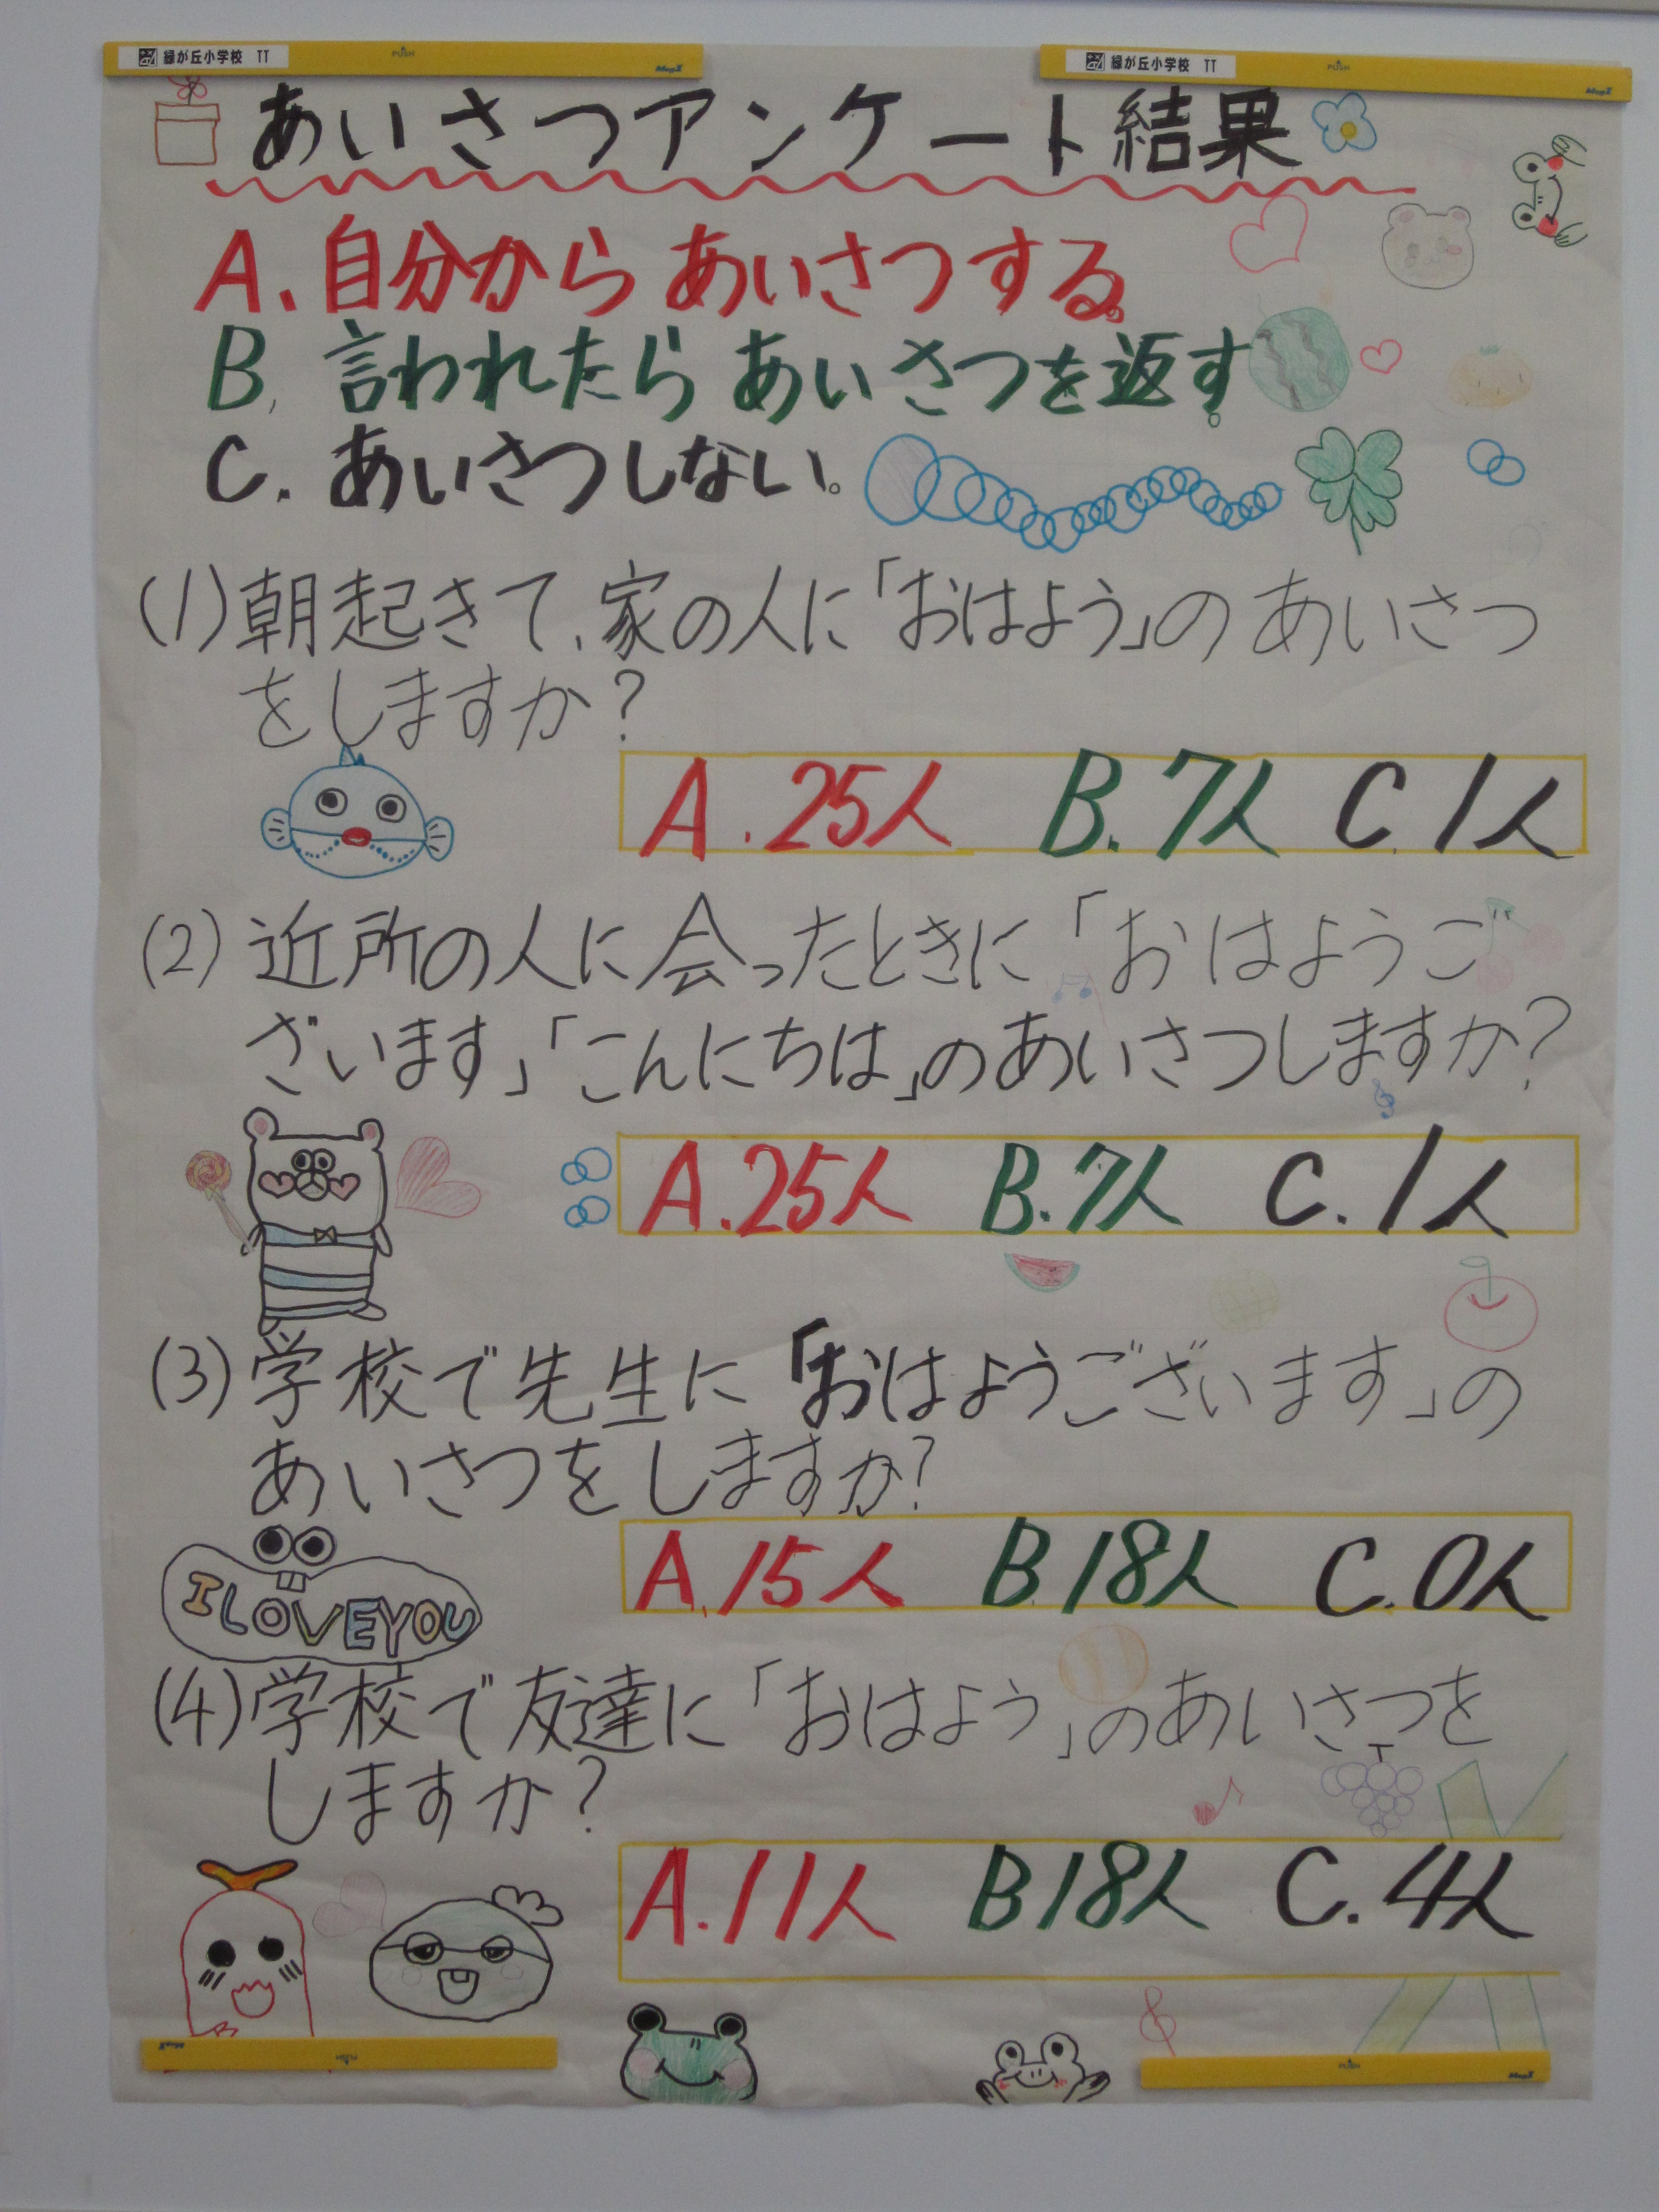 緑が丘小学校 TT
PUSH
MagX
緑が丘小学校 TT
PUSH
MagX
あいさつアンケート結果
A、自分からあいさつする。
B、言われたらあいさつを返す。
C. あいさつしない。
(1)朝起きて、家の人に「おはよう」のあいさつ
をしますか?
A.25人 B.7人 C.1人
(2)近所の人に会ったときに「おはようご
ざいます」「こんにちは」のあいさつしますか?
A.25人 B.7人 C.1人
(3)学校で先生に「おはようございます」の
あいさつをしますか?
A.15人 B.18人 C.0人
I LOVE YOU
(4)学校で友達に「おはよう」のあいさつを
しますか?
A.11人 B18人 C.4人
MagX
PUSH
PUSH
MagX